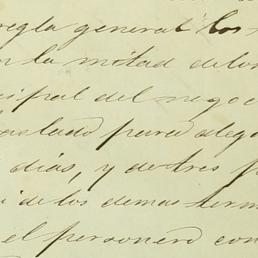 regla general los
la mitad de los
cipal del negoc
traslado para alega
dias, y de tres p
i de los demas term
el personero con